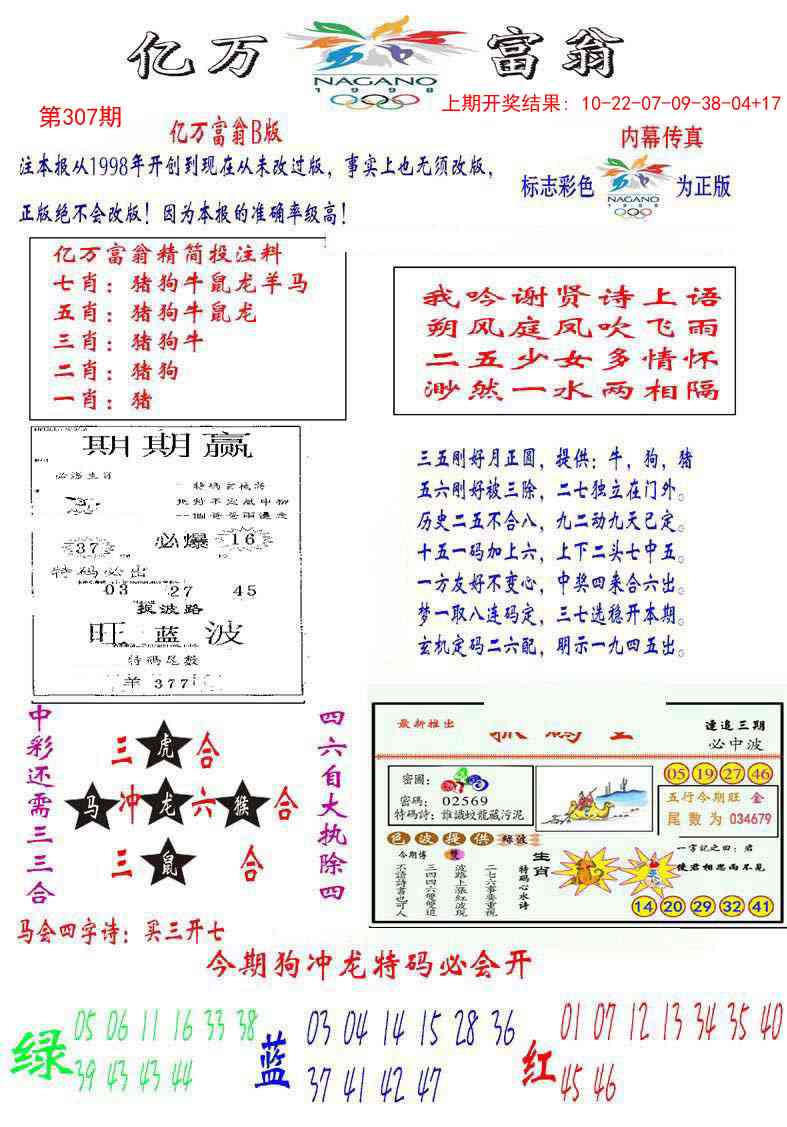 亿万富翁
NAGANO
1998
第307期
上期开奖结果: 10-22-07-09-38-04+17
亿万富翁B版
内幕传真
注本报从1998年开创到现在从未改过版，事实上也无须改版，
正版绝不会改版！因为本报的准确率级高！
标志彩色
NAGANO
1998
为正版
亿万富翁精简投注料
七肖：猪狗牛鼠龙羊马
五肖：猪狗牛鼠龙
三肖：猪狗牛
二肖：猪狗
一肖：猪
我吟谢贤诗上语
朔风庭凤吹飞雨
二五少女多情怀
渺然一水两相隔
期期赢
37
必爆
16
特码必出
03 27 45
旺蓝波
特码尾数
羊 377
三五刚好月正圆，提供：牛，狗，猪
五六刚好被三除，二七独立在门外。
历史二五不合八，九二动九天已定。
十五一码加上六，上下二头七中五。
一方友好不变心，中奖四来合六出。
梦一取八连码定，三七选稳开本期。
玄机定码二六配，明示一九四五出。
中彩还需三三合
三虎合
马冲龙六猴合
三鼠合
四六自大执除四
最新推出
連追三期
必中波
密圖：
密碼：02569
特碼詩：誰識蛟龍藏污泥
05 19 27 46
五行今期旺 金
尾數为 034679
色波提供
綠波
今期博 雙
不讀詩書也可人
三四四六雙雙追
波路上漲紅波現
二七六事要重視
特碼心水诗
生肖
一字記之曰：君
使君相思而不見
14 20 29 32 41
马会四字诗：买三开七
今期狗冲龙特码必会开
绿
05 06 11 16 33 38
39 43 43 44
蓝
03 04 14 15 28 36
37 41 42 47
红
01 07 12 13 34 35 40
45 46